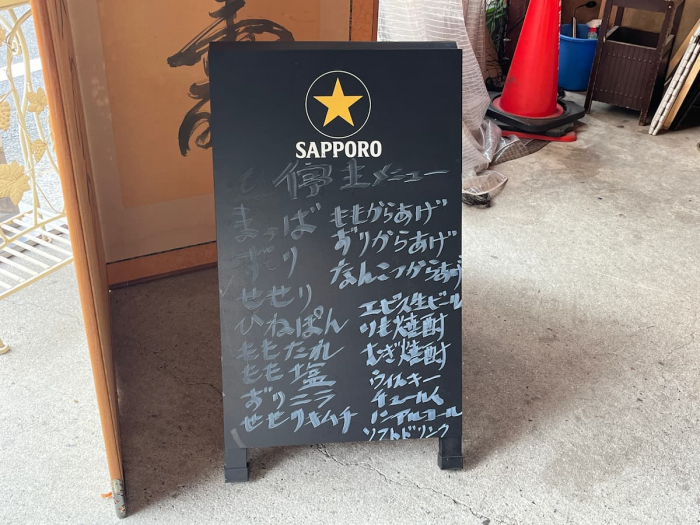 SAPPORO
メニュー
まつば
ずり
せせり
ひねぽん
ももたれ
もも塩
ずりニラ
せせりキムチ
ももからあげ
ずりからあげ
なんこつからあげ
エビス生ビール
いも焼酎
むぎ焼酎
ウイスキー
ノンアルコール
ソフトドリンク